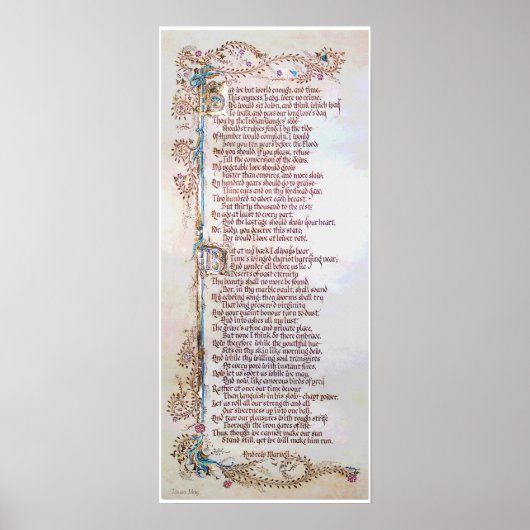 Had we but world enough, and time,
This coyness Lady, were no crime.
We would sit down, and think which way
To walk, and pass our long love's day.
Thou by the Indian Ganges' side
Should'st rubies find: I by the tide
Of Humber would complain. I would
Love you ten years before the Flood:
And you should, if you please, refuse
Till the conversion of the Jews.
My vegetable love should grow
Vaster than empires, and more slow;
An hundred years should go to praise
Thine eyes, and on thy forehead gaze;
Two hundred to adore each breast:
But thirty thousand to the rest;
An age at least to every part,
And the last age should show your heart.
For, Lady, you deserve this state;
Nor would I love at lower rate.
But at my back I always hear
Time's winged chariot hurrying near;
And yonder all before us lie
Deserts of vast eternity.
Thy beauty shall no more be found,
Nor, in thy marble vault, shall sound
My echoing song; then worms shall try
That long preserv'd virginity
And your quaint honour turn to dust,
And into ashes all my lust:
The Grave's a fine and private place,
But none I think do there embrace.
Now therefore while the youthful hue
Sits on thy skin like morning dew,
And while thy willing soul transpires
At every pore with instant fires,
Now let us sport us while we may,
And now, like amorous birds of prey
Rather at once our time devour
Than languish in his slow-chapt power.
Let us roll all our strength and all
Our sweetness up into one ball,
And tear our pleasures with rough strife
Thorough the iron gates of life:
Thus, though we cannot make our sun
Stand still, yet we will make him run.
Andrew Marvell